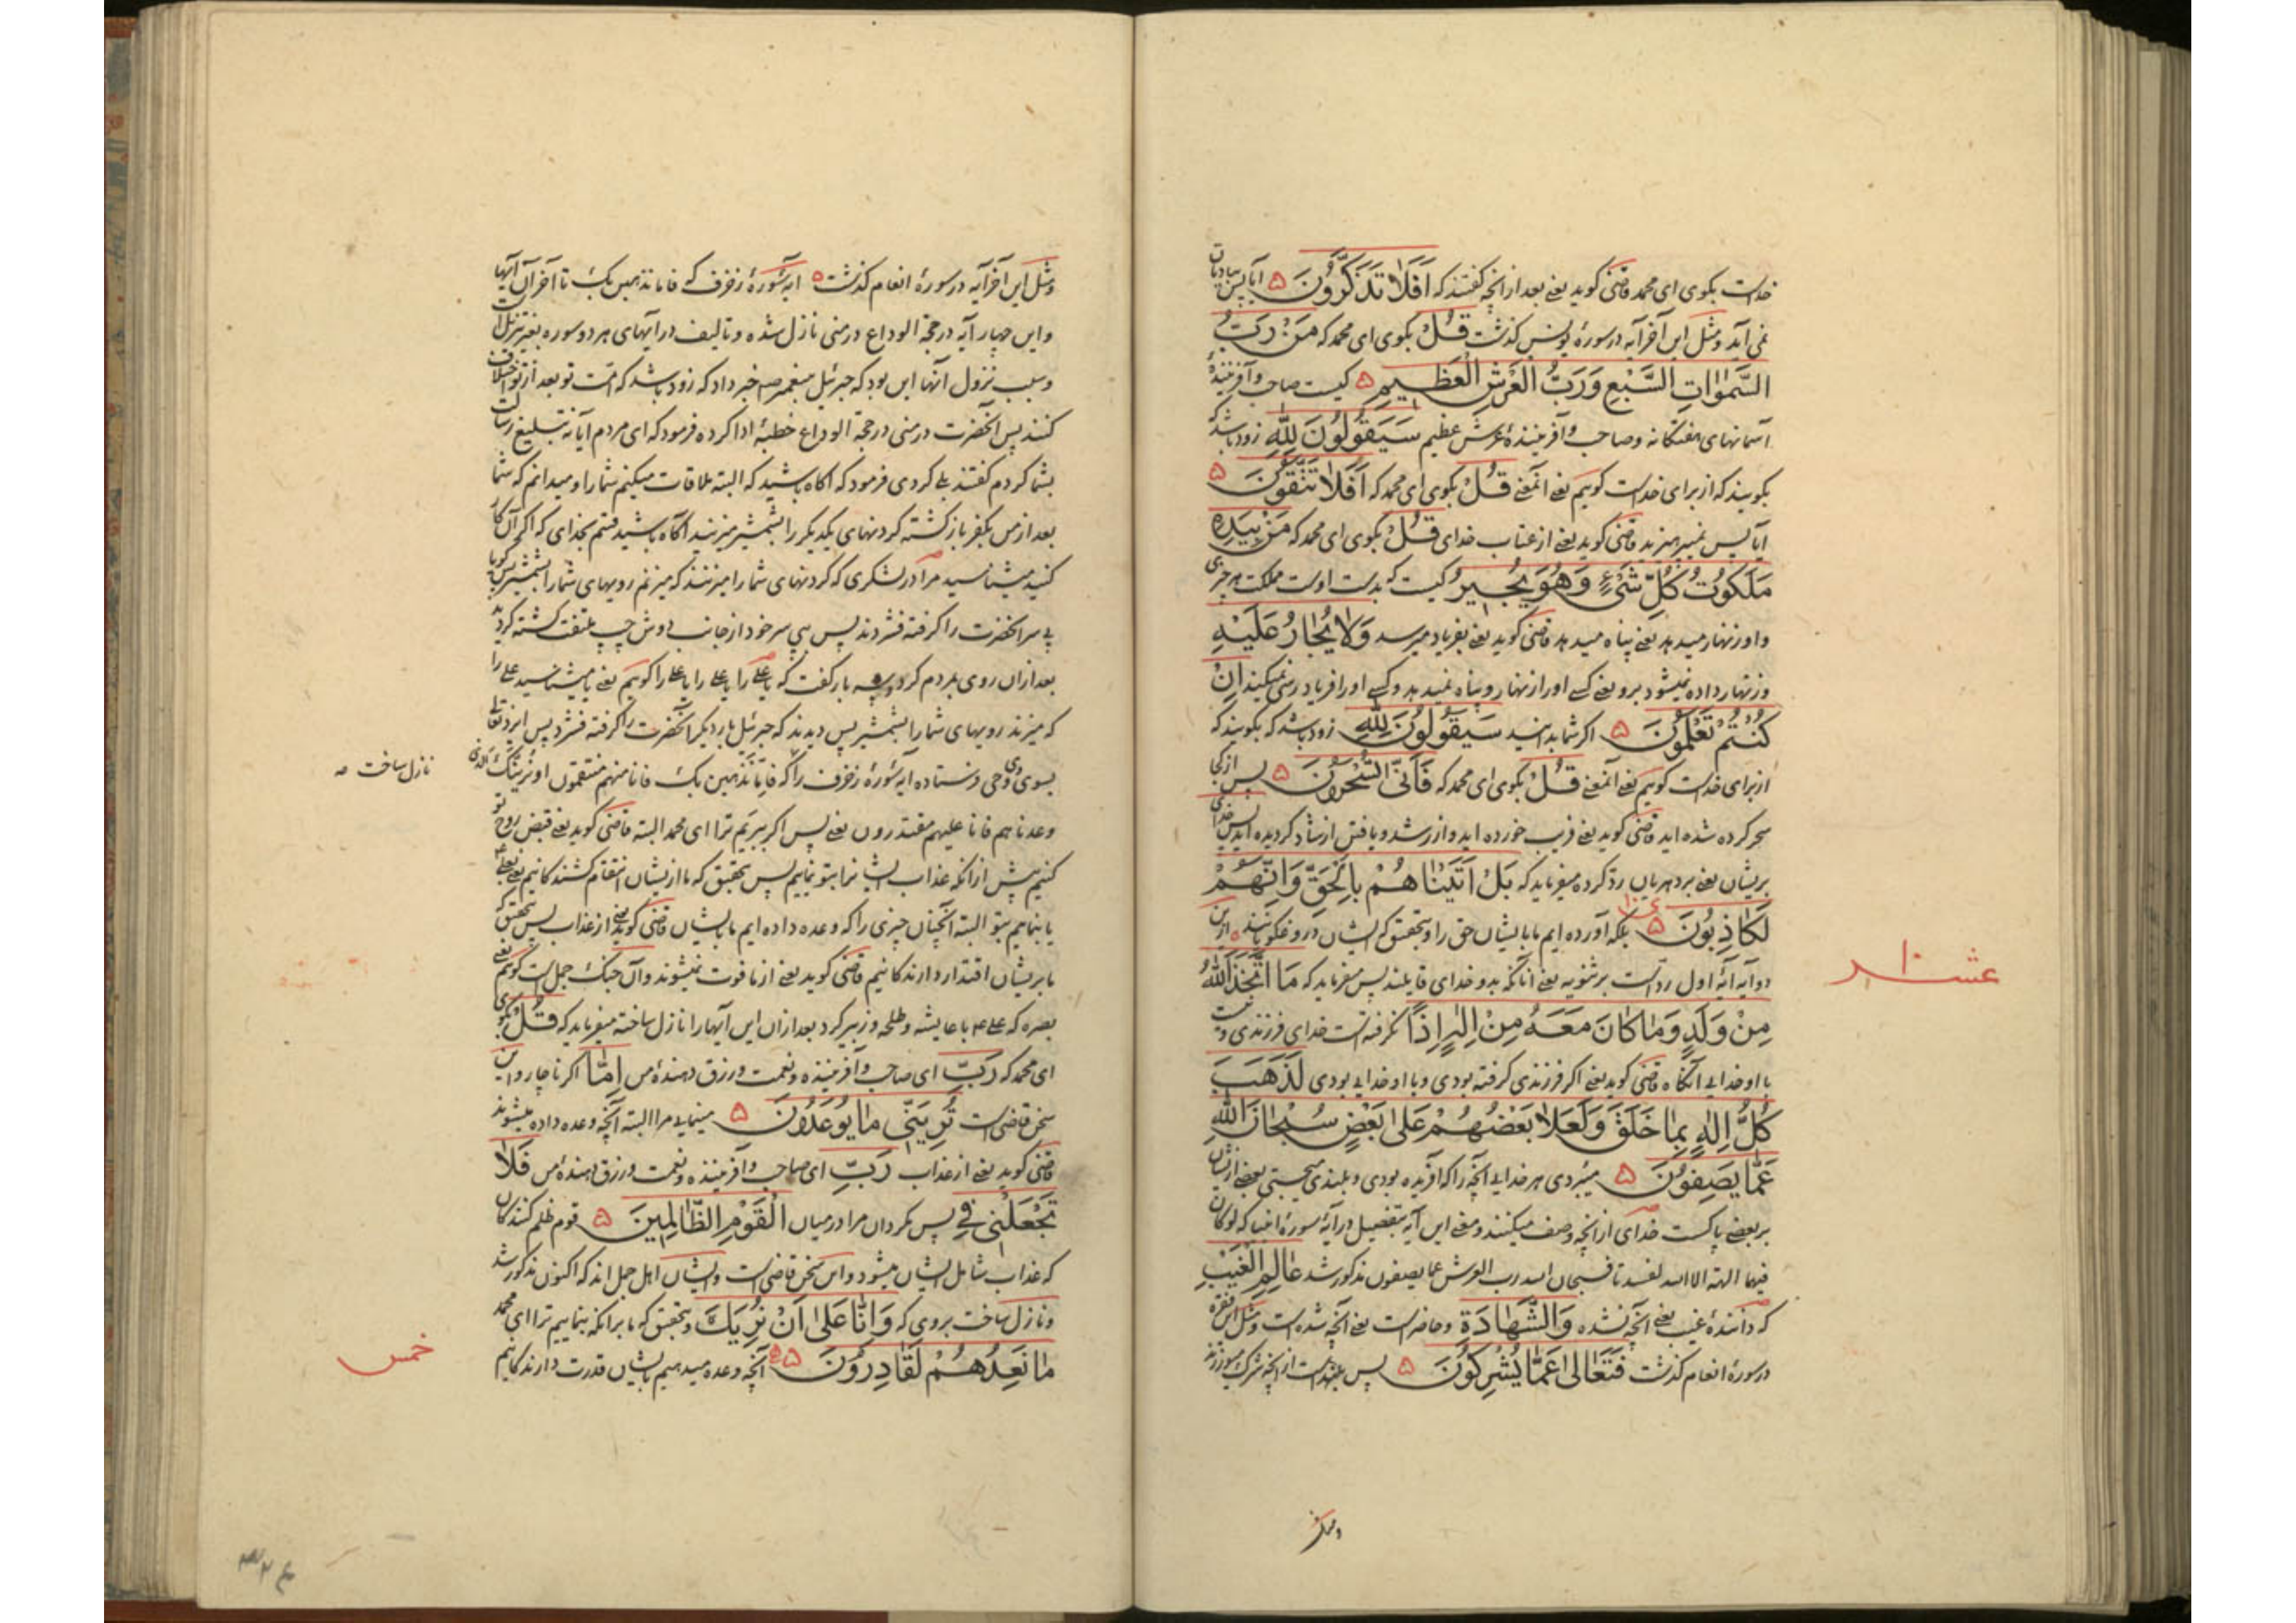 خداست بگوی ای محمد قاضی گوید یعنی بعد از آنچه گفتند که أَفَلَا تَذَكَّرُونَ ۵ آیا پس بیاد تان
نمی آید و مثل این آخر آیه در سورهٔ یونس گذشت قُلْ بگوی ای محمد که مَنْ رَبُّ
السَّمٰوَاتِ السَّبْعِ وَرَبُّ الْعَرْشِ الْعَظِيمِ ۵ کیست صاحب و آفرینندهٔ
آسمانهای هفتگانه و صاحب و آفرینندهٔ عرش عظیم سَيَقُولُونَ لِلَّهِ زود باشد که
بگویند که از برای خداست گوییم یعنی آنمعنی قُلْ بگوی ای محمد که أَفَلَا تَتَّقُونَ ۵
آیا پس نمیپرهیزید قاضی گوید یعنی از عتاب خدای قُلْ بگوی ای محمد که مَنْ بِيَدِهِ
مَلَكُوتُ كُلِّ شَيْءٍ وَهُوَ يُجِيرُ کیست که بدست اوست مملکت هر چیزی
و او زنهار میدهد یعنی پناه میدهد قاضی گوید یعنی بفریاد میرسد وَلَا يُجَارُ عَلَيْهِ
و زنهار داده نمیشود برو یعنی کسی او را زنهار و پناه نمیدهد و کسی او را فریادرسی نمیکند إِنْ
كُنْتُمْ تَعْلَمُونَ ۵ اگر شما بدانید سَيَقُولُونَ لِلَّهِ زود باشد که بگویند که
از برای خداست گوییم یعنی آنمعنی قُلْ بگوی ای محمد که فَأَنَّى تُسْحَرُونَ ۵ پس از کجا
سحر کرده شده اید قاضی گوید یعنی فریب خورده اید و از رشد و یافتن ارشاد گردیده اید پس خدای
بریشان یعنی بر دهریان رد کرده میفرماید که بَلْ أَتَيْنَاهُمْ بِالْحَقِّ وَإِنَّهُمْ
لَكَاذِبُونَ ۵ بلکه آورده ایم ما بایشان حق را و بتحقیق که ایشان دروغگویانند ازین
دو آیه آیهٔ اول رد است بر ثنویه یعنی آنانکه بدو خدای قایلند پس میفرماید که مَا اتَّخَذَ اللَّهُ
مِنْ وَلَدٍ وَمَا كَانَ مَعَهُ مِنْ إِلٰهٍ إِذًا نگرفته است خدای فرزندی و نیست
با او خدایی آنگاه قاضی گوید یعنی اگر فرزندی گرفته بودی و با او خدایی بودی لَذَهَبَ
كُلُّ إِلٰهٍ بِمَا خَلَقَ وَلَعَلَا بَعْضُهُمْ عَلَى بَعْضٍ سُبْحَانَ اللَّهِ
عَمَّا يَصِفُونَ ۵ میبردی هر خدایی آنچه را که آفریده بودی و بلندی میجستی بعضی ازیشان
بر بعضی پاکست خدای از آنچه وصف میکنند و معنی این آیه بتفصیل در آیهٔ سورهٔ انبیا که لو کان
فیهما الهة الا الله لفسدتا فسبحان الله رب العرش عما یصفون مذکور شد عَالِمِ الْغَيْبِ
که دانندهٔ غیب یعنی آنچه نشده وَالشَّهَادَةِ و حاضر است یعنی آنچه شده است و مثل این فقره
در سورهٔ انعام گذشت فَتَعَالَى عَمَّا يُشْرِكُونَ ۵ پس بلند است از آنچه شرک میورزند
عشر
و مثل این آخر آیه در سورهٔ انعام گذشت ۵ آیه سورهٔ زخرف که فاما نذهبن بک تا آخر آن آیتها
و این چهار آیه در حجة الوداع در منی نازل شده و تالیف در آیهای هر دو سوره بغیر تنزیل است
و سبب نزول آنها این بود که جبرئیل پیغمبر صه خبر داد که زود باشد که امت تو بعد از تو اختلاف
کنند پس آنحضرت در منی در حجة الوداع خطبهٔ ادا کرده فرمود که ای مردم آیا نه تبلیغ رسالت
بشما کردم گفتند بلی کردی فرمود که آگاه باشید که البته ملاقات میکنم شما را و میدانم که شما
بعد از من بکفر بازگشته گردنهای یکدیگر را بشمشیر میزنید آگاه باشید قسم بخدای که اگر آن کار
کنید میشناسید مرا در لشکری که گردنهای شما را میزنند که میزنم رویهای شما را بشمشیر پس گویا
پی سر آنحضرت را گرفته فشردند پس پی سر خود از جانب دوش چپ ملتفت گشته کردید
بعد از آن روی بمردم کرد و سه بار گفت که یا علی را یا علی را یا علی را گوییم یعنی یا میشناسید علی را
که میزند رویهای شما را بشمشیر پس دیدند که جبرئیل بار دیگر آنحضرت را گرفته فشرد پس ایزد تعالی
بسوی وی وحی فرستاده آیه سورهٔ زخرف را که فاما نذهبن بک فانا منهم منتقمون او نرینک الذی
وعدناهم فانا علیهم مقتدرون یعنی پس اگر ببریم ترا ای محمد البته قاضی گوید یعنی قبض روح تو
کنیم پیش از آنکه عذاب ایشانرا بتو نماییم پس بتحقیق که ما ازیشان انتقام کشندگانیم یعنی بعلی ع
یا بنماییم بتو البته آنچنان چیزی را که وعده داده ایم ما بایشان قاضی گوید یعنی از عذاب پس بتحقیق که
ما بریشان اقتدار دارندگانیم قاضی گوید یعنی از ما فوت نمیشوند و آن جنگ جمل است گوییم یعنی
بصره که علی ع با عایشه و طلحه و زبیر کرد بعد از آن این آیها را نازل ساخته میفرماید که قُلْ بگوی
ای محمد که رَبِّ ای صاحب و آفریننده و نعمت و رزق دهندهٔ من إِمَّا اگر ناچار و این
سخن قاضی است تُرِيَنِّي مَا يُوعَدُونَ ۵ مینمایی مرا البته آنچه وعده داده میشوند
قاضی گوید یعنی از عذاب رَبِّ ای صاحب و آفریننده و نعمت و رزق دهندهٔ من فَلَا
تَجْعَلْنِي فِي پس مگردان مرا در میان الْقَوْمِ الظَّالِمِينَ ۵ قوم ظلم کنندگان
که عذاب شامل ایشان میشود و این سخن قاضی است و ایشان اهل جمل اند که اکنون مذکور شد
و نازل ساخت بروی که وَإِنَّا عَلَى أَنْ نُرِيَكَ و بتحقیق که ما برانکه بنماییم ترا ای محمد
مَا نَعِدُهُمْ لَقَادِرُونَ ۵ آنچه وعده میدهیم بایشان قدرت دارندگانیم
نازل ساخت صه
خمس